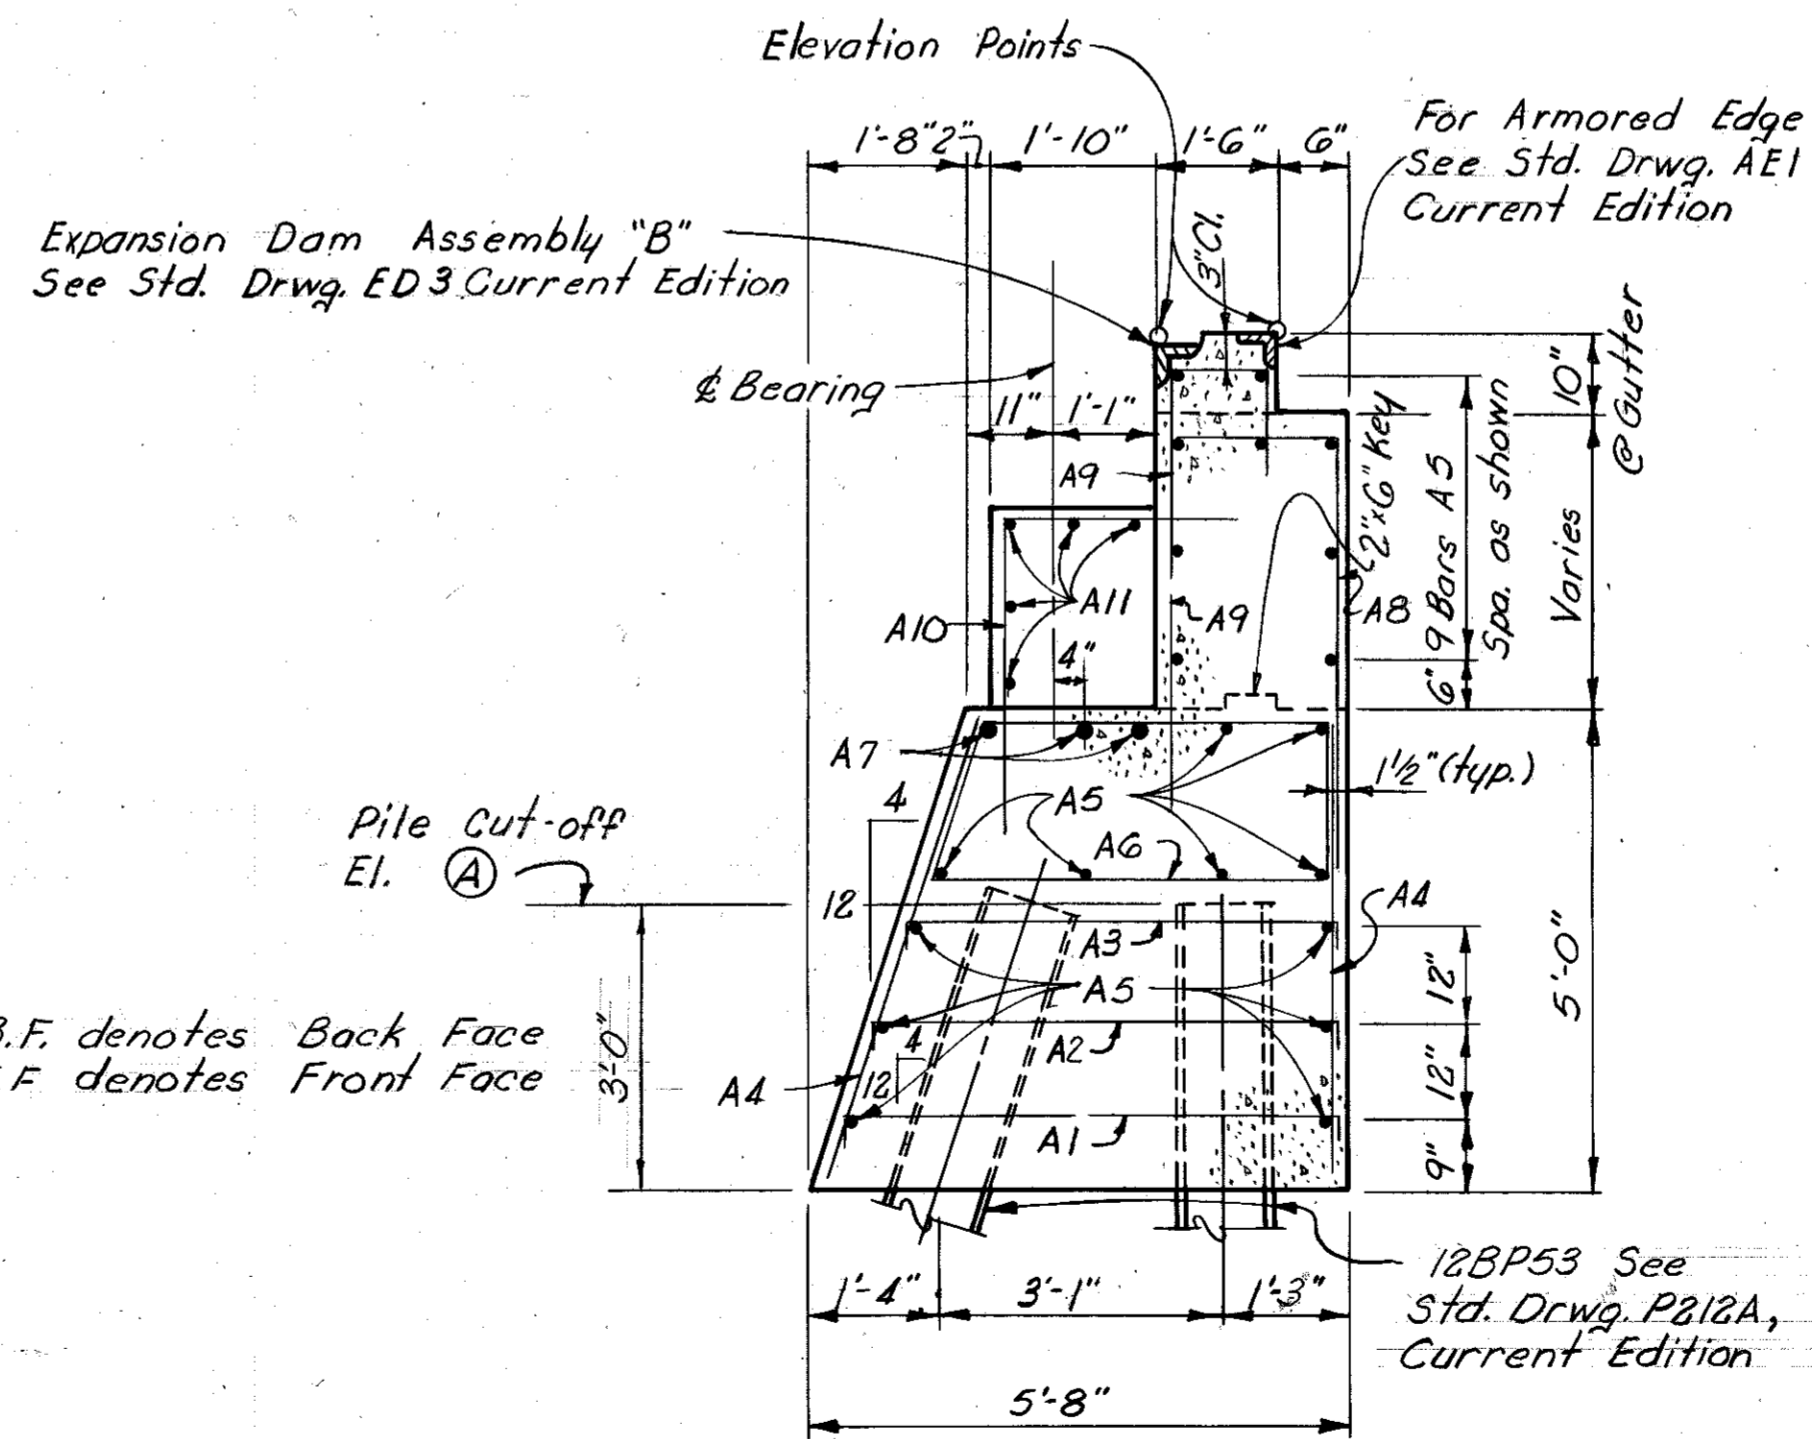 Elevation Points
1'-8" 2" 1'-10" 1'-6" 6"
For Armored Edge
See Std. Drwg. AE1
Current Edition
Expansion Dam Assembly "B"
See Std. Drwg. ED3 Current Edition
3" Cl.
₵ Bearing
11" 1'-1"
10"
@ Gutter
A9
2"x6" Key
9 Bars A5
Spa. as shown
Varies
A11
A10
A9
A8
4"
6"
A7
1½" (typ.)
4
12
A5
Pile Cut-off
El. A
A6
A4
A3
A5
12"
5'-0"
B.F. denotes Back Face
F.F. denotes Front Face
3'-0"
4
12
A2
A4
12"
A1
9"
1'-4" 3'-1" 1'-3"
12BP53 See
Std. Drwg. P212A,
Current Edition
5'-8"